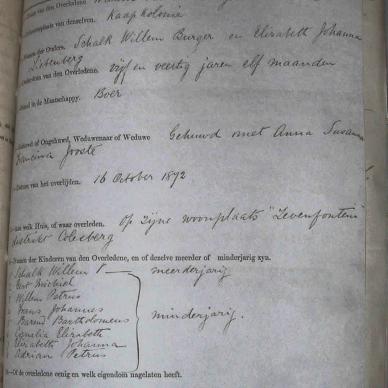 van den Overledene
van denselven. Kaap kolonie
der Ouders. Schalk Willem Burger en Elizabeth Johanna
van den Overledene. vijf en veertig jaren elf maanden
in de Maatschappy. Boer
of Ongehuwd, Weduwenaar of Weduwe Gehuwd met Anna Susanna
Francina Jooste
Datum van het overlijden. 16 October 1892
welk Huis, of waar overleden. Op zijne woonplaats "Zevenfontein"
distrikt Colesberg
Namen der Kinderen van den Overledene, en of dezelve meerder of minderjarig zyn.
Schalk Willem meerderjarig
Michiel
Willem Petrus
Frans Johannes
Barend Bartholomeus minderjarig.
Cornelia Elizabeth
Elizabeth Johanna
Adrian Petrus
Of de overledene eenig en welk eigendom nagelaten heeft.